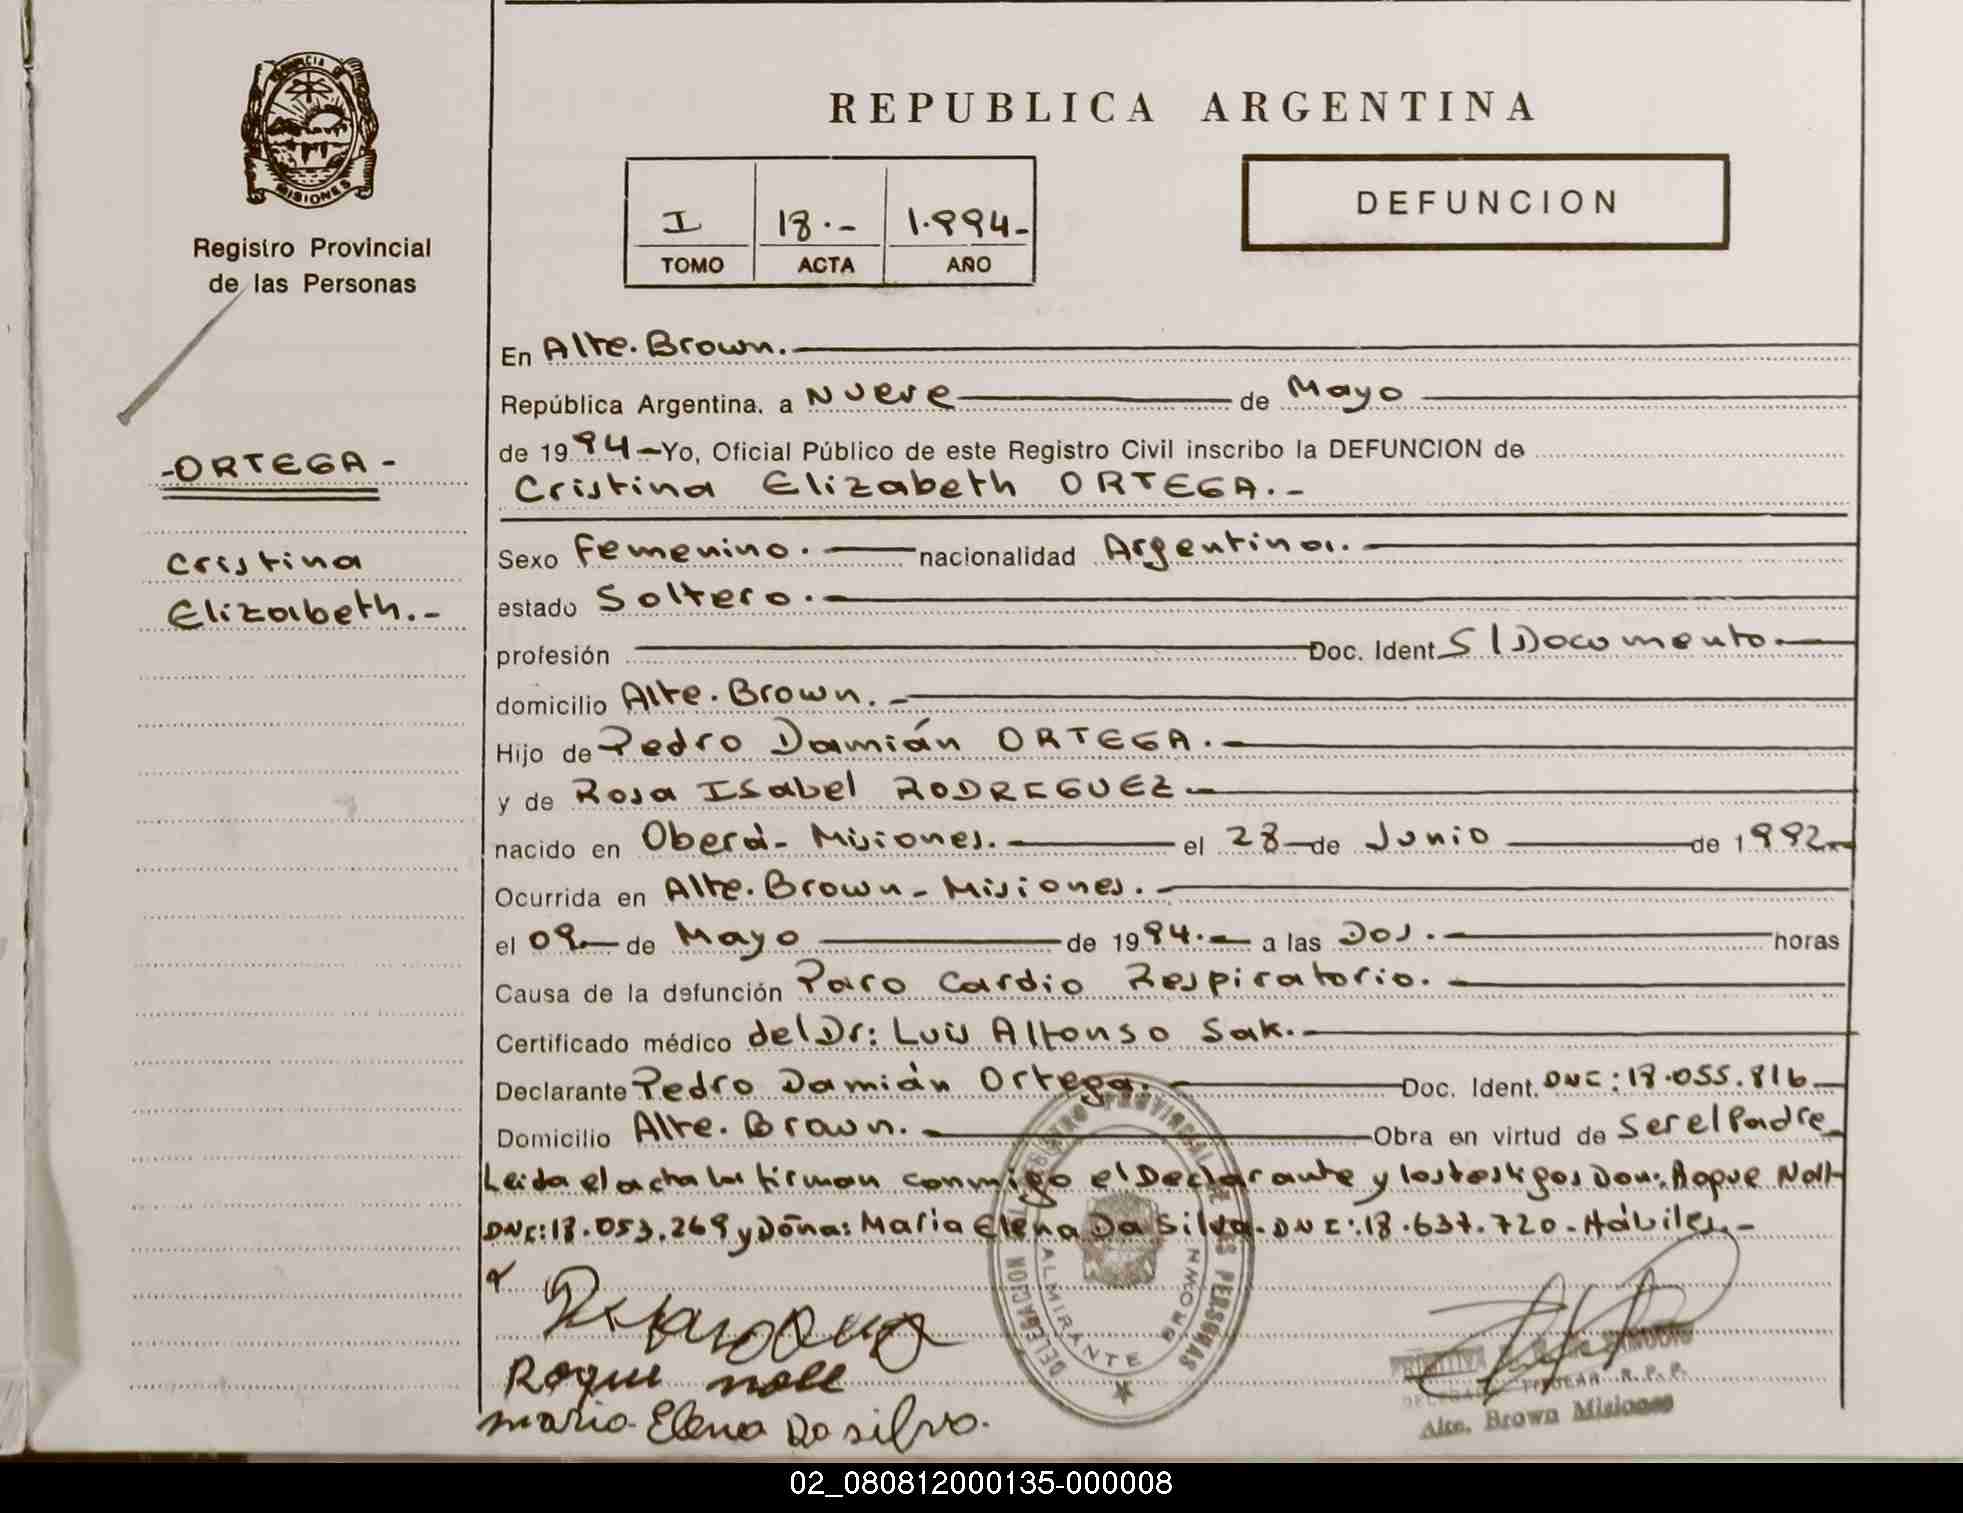 PROVINCIA DE
MISIONES
Registro Provincial
de las Personas
-ORTEGA-
Cristina
Elizabeth.-
REPUBLICA ARGENTINA
I 18.- 1.994-
TOMO ACTA AÑO
DEFUNCION
En Alte. Brown.
República Argentina, a Nueve de Mayo
de 1994- Yo, Oficial Público de este Registro Civil inscribo la DEFUNCION de
Cristina Elizabeth ORTEGA.-
Sexo Femenino. nacionalidad Argentina.
estado Soltero.-
profesión Doc. Ident. S/Documento.
domicilio Alte. Brown.-
Hijo de Pedro Damián ORTEGA.-
y de Rosa Isabel RODRIGUEZ-
nacido en Oberá- Misiones. el 28 de Junio de 1992.-
Ocurrida en Alte. Brown- Misiones.-
el 09. de Mayo de 1994.- a las Dos.- horas
Causa de la defunción Paro Cardio Respiratorio.-
Certificado médico del Dr: Luis Alfonso Sak.-
Declarante Pedro Damián Ortega.- Doc. Ident. DNI: 18.055.816
Domicilio Alte. Brown.- Obra en virtud de Ser el Padre-
Leida el acta la firman conmigo el Declarante y los testigos Don: Roque Noll-
DNI: 18.053.269 y Doña: Maria Elena Da Silva- DNI: 18.637.720- Hábiles.-
Roque noll
maria Elena Da silva.
REGISTRO PROVINCIAL DE LAS PERSONAS
DELEGACION
ALMIRANTE BROWN
PRIMITIVA
TITULAR R. P. P.
Alte. Brown Misiones
02_080812000135-000008